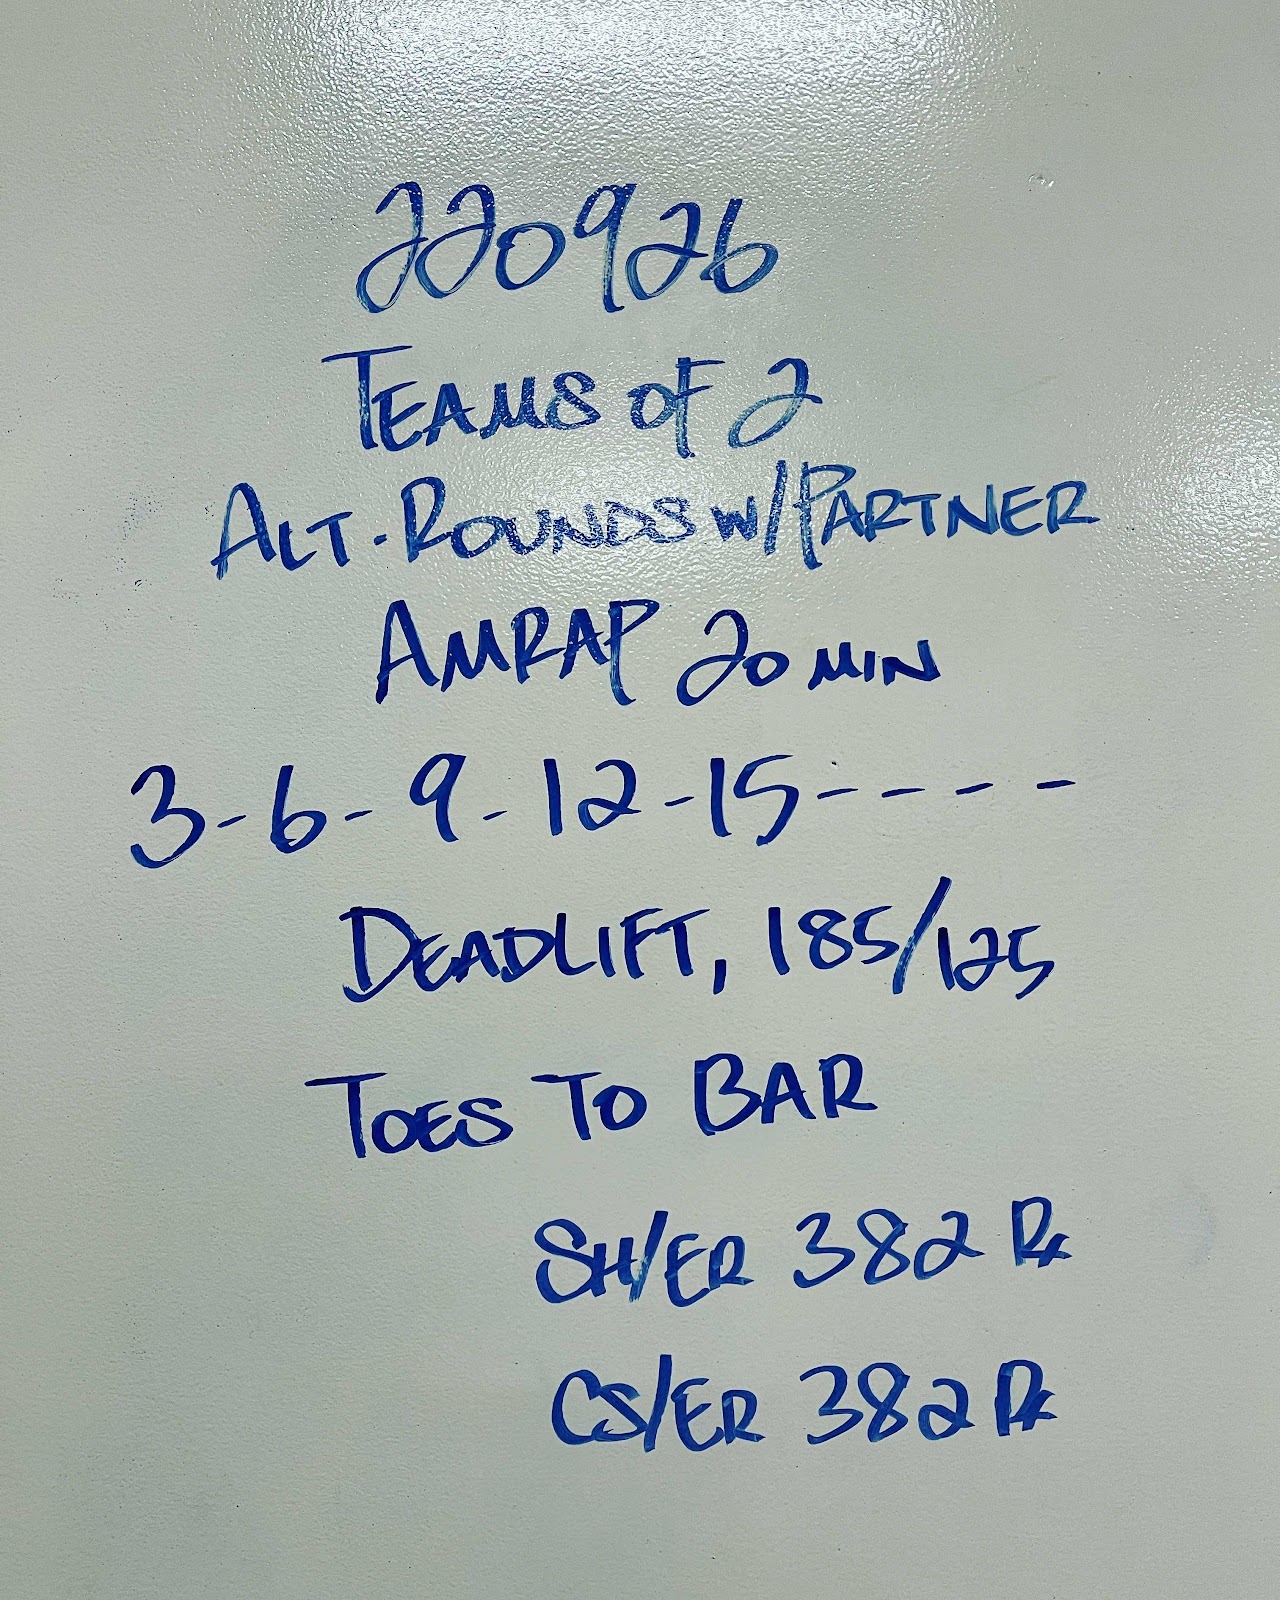 220926
TEAMS OF 2
ALT. ROUNDS W/PARTNER
AMRAP 20 MIN
3-6-9-12-15----
DEADLIFT, 185/125
TOES TO BAR
SH/ER 382 Rx
CS/ER 382 Rx